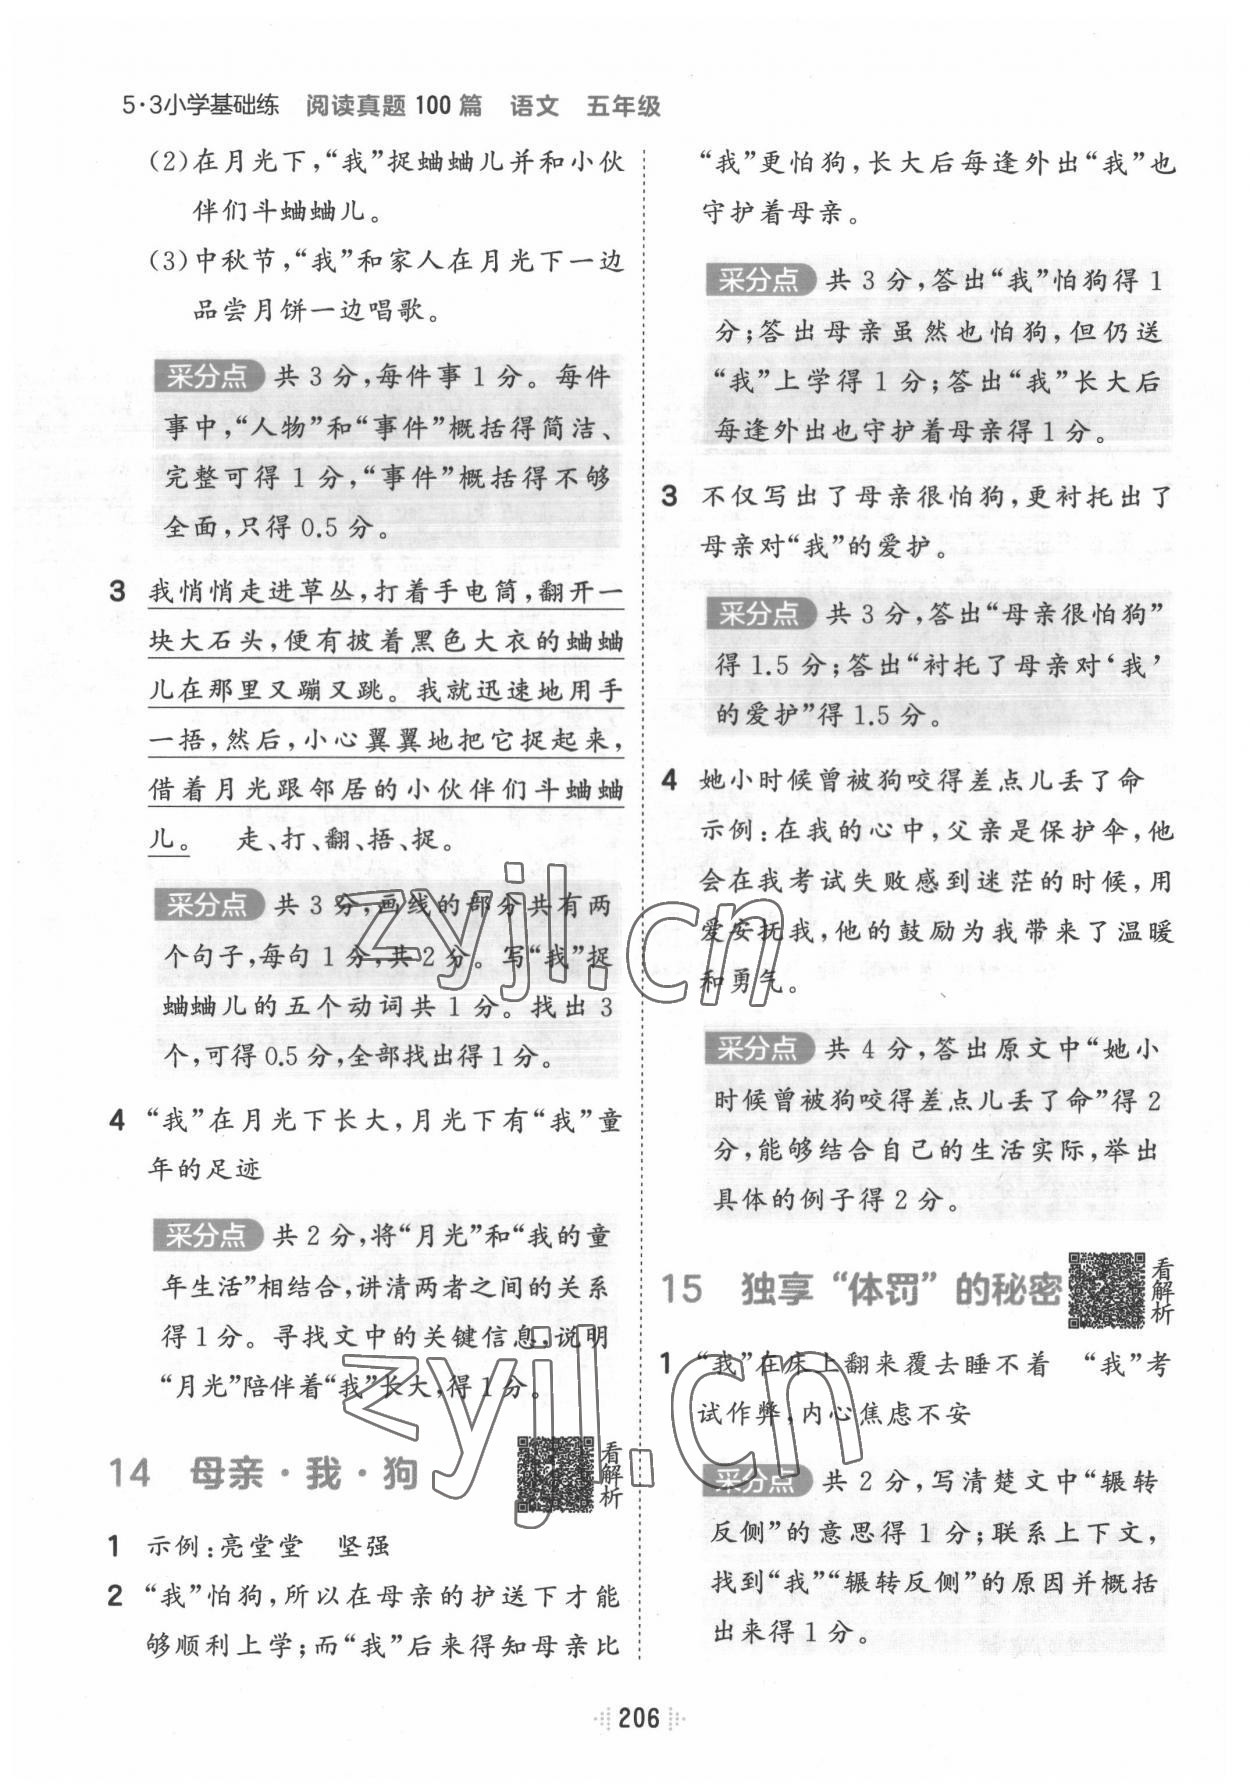 5·3小学基础练 阅读真题100篇 语文 五年级
(2)在月光下,“我”捉蛐蛐儿并和小伙
伴们斗蛐蛐儿。
(3)中秋节,“我”和家人在月光下一边
品尝月饼一边唱歌。
采分点 共3分,每件事1分。每件
事中,“人物”和“事件”概括得简洁、
完整可得1分,“事件”概括得不够
全面,只得0.5分。
3 我悄悄走进草丛,打着手电筒,翻开一
块大石头,便有披着黑色大衣的蛐蛐
儿在那里又蹦又跳。我就迅速地用手
一捂,然后,小心翼翼地把它捉起来,
借着月光跟邻居的小伙伴们斗蛐蛐
儿。 走、打、翻、捂、捉。
采分点 共3分,画线的部分共有两
个句子,每句1分,共2分。写“我”捉
蛐蛐儿的五个动词共1分。找出3
个,可得0.5分,全部找出得1分。
4 “我”在月光下长大,月光下有“我”童
年的足迹
采分点 共2分,将“月光”和“我的童
年生活”相结合,讲清两者之间的关系
得1分。寻找文中的关键信息,说明
“月光”陪伴着“我”长大,得1分。
14 母亲·我·狗
看解析
1 示例:亮堂堂 坚强
2 “我”怕狗,所以在母亲的护送下才能
够顺利上学;而“我”后来得知母亲比
“我”更怕狗,长大后每逢外出“我”也
守护着母亲。
采分点 共3分,答出“我”怕狗得1
分;答出母亲虽然也怕狗,但仍送
“我”上学得1分;答出“我”长大后
每逢外出也守护着母亲得1分。
3 不仅写出了母亲很怕狗,更衬托出了
母亲对“我”的爱护。
采分点 共3分,答出“母亲很怕狗”
得1.5分;答出“衬托了母亲对‘我’
的爱护”得1.5分。
4 她小时候曾被狗咬得差点儿丢了命
示例:在我的心中,父亲是保护伞,他
会在我考试失败感到迷茫的时候,用
爱安抚我,他的鼓励为我带来了温暖
和勇气。
采分点 共4分,答出原文中“她小
时候曾被狗咬得差点儿丢了命”得2
分,能够结合自己的生活实际,举出
具体的例子得2分。
15 独享“体罚”的秘密
看解析
1 “我”在床上翻来覆去睡不着 “我”考
试作弊,内心焦虑不安
采分点 共2分,写清楚文中“辗转
反侧”的意思得1分;联系上下文,
找到“我”“辗转反侧”的原因并概括
出来得1分。
206
zyjl.cn
zyjl.cn